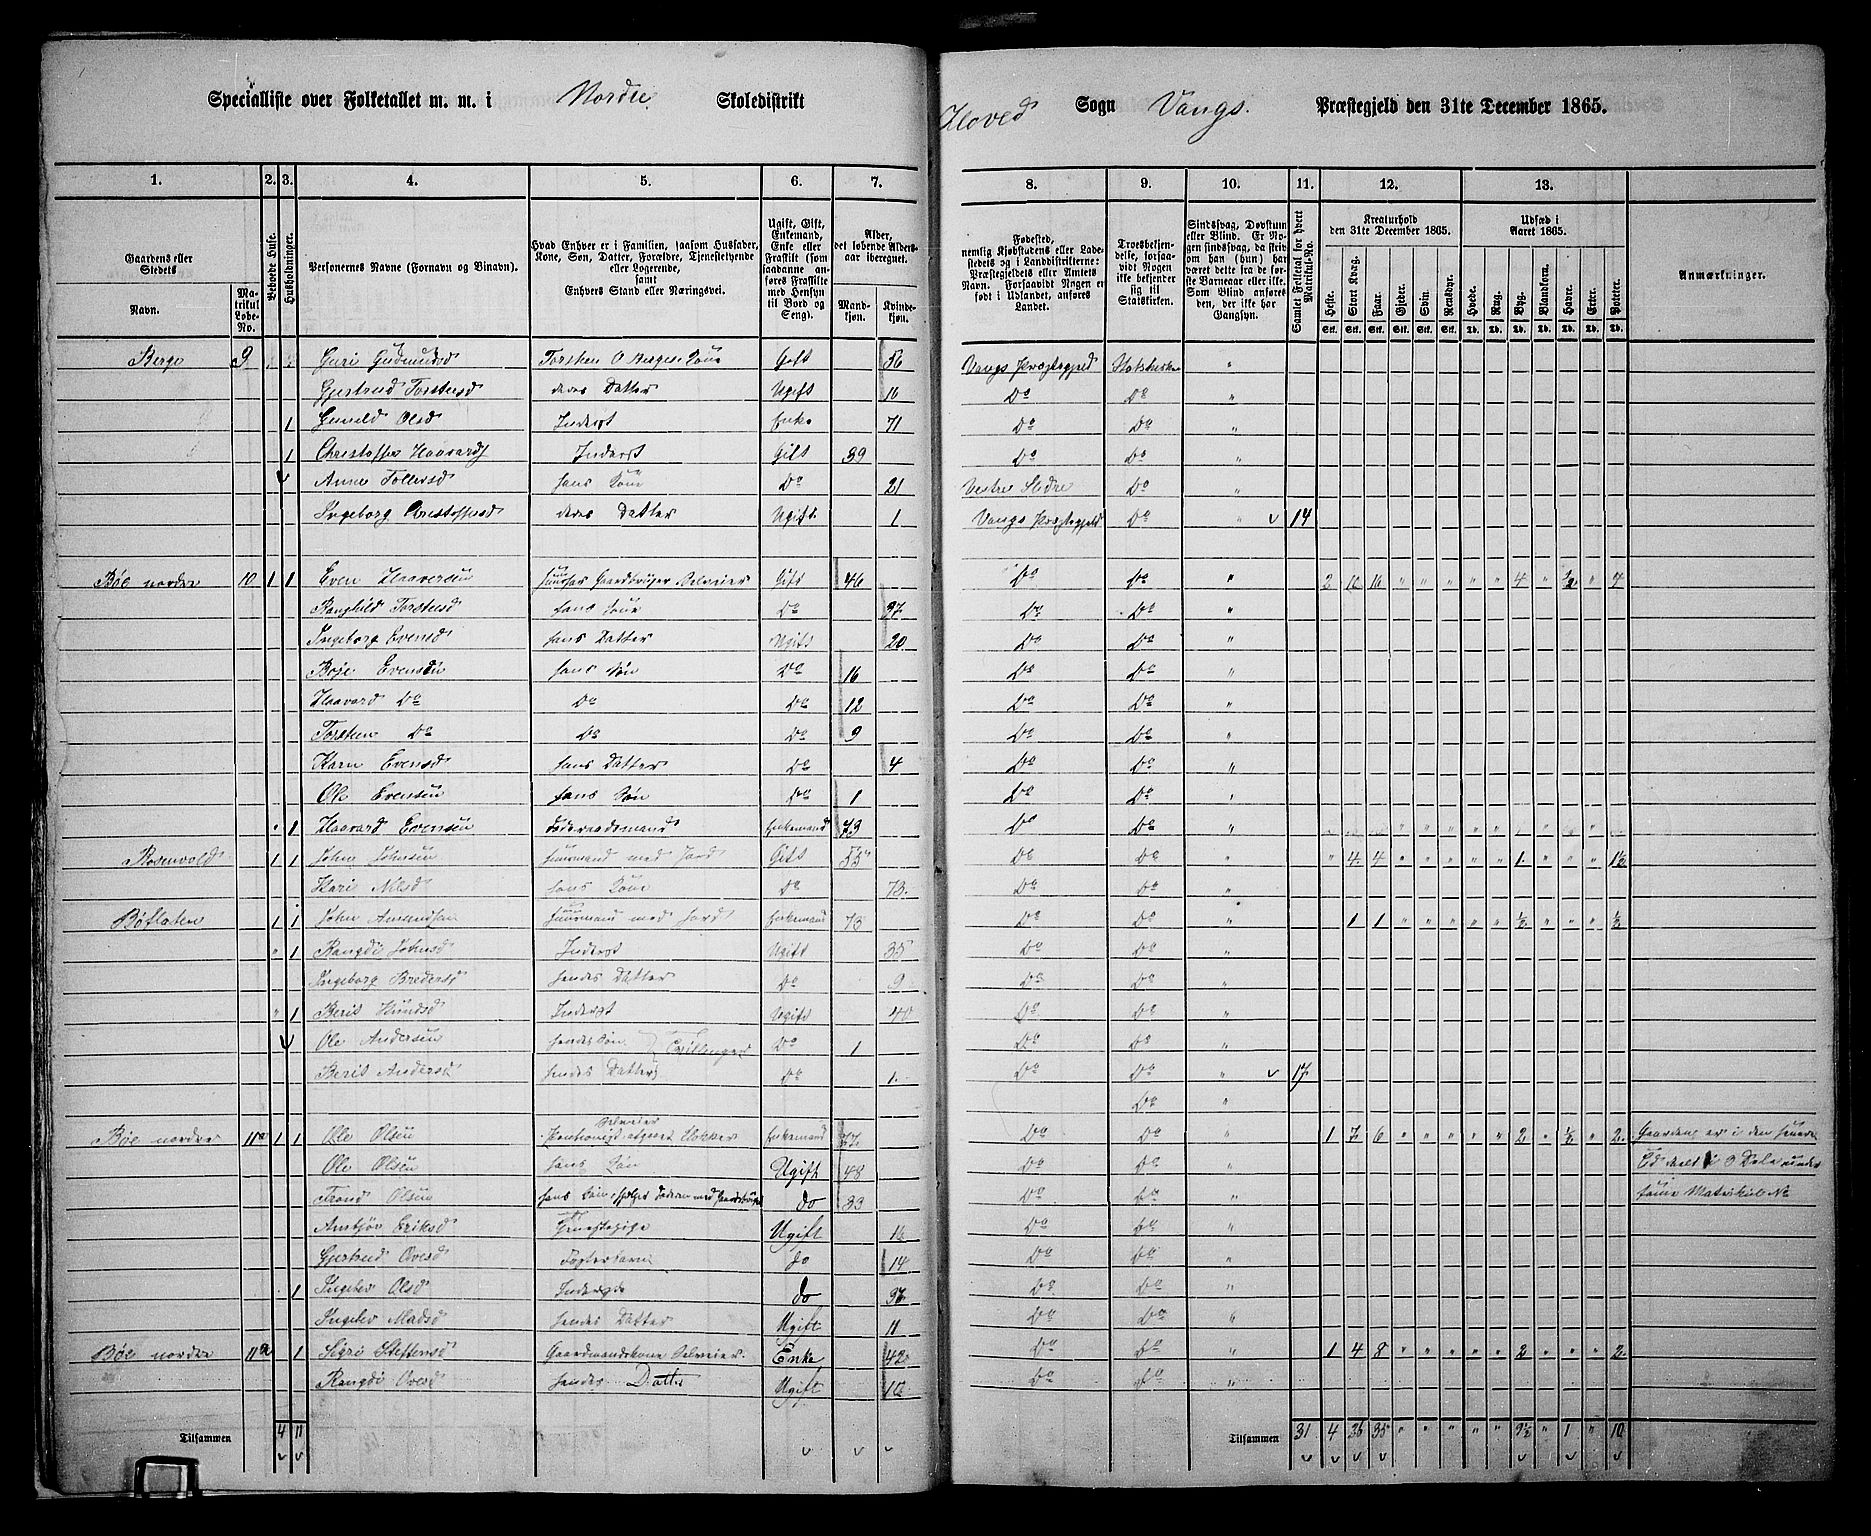 Specialliste over Folketallet m. m. i Nordre Skoledistrikt Hoved Sogn Vangs Præstegjeld den 31te December 1865.
1. 2. 3. 4. 5. 6. 7. 8. 9. 10. 11. 12. 13.
Gaardens eller Stedets
Navn. Matrikul Løbe-No.
Beboede Huse.
Husholdninger.
Personernes Navne (Fornavn og Binavn).
Hvad Enhver er i Familien, saasom Husfader, Kone, Søn, Datter, Forældre, Tjenestetyende eller Logerende, samt Enhvers Stand eller Næringsvei.
Ugift, Gift, Enkemand, Enke eller Fraskilt (som saadanne anføres Fraskilte med Hensyn til Bord og Seng).
Alder, det løbende Aldersaar iberegnet.
Mandkjøn. Kvindekjøn.
Fødested, nemlig Kjøbstedens eller Ladestedets og i Landdistrikterne: Præstegjeldets eller Amtets Navn. Forsaavidt Nogen er født i Udlandet, anføres Landet.
Troesbekjendelse, forsaavidt Nogen ikke bekjender sig til Statskirken.
Sindssvag, Døvstum eller Blind. Er Nogen sindssvag, da skriv om han (hun) har været dette fra de første Barneaar eller ikke. Som Blind anføres der, der ikke har Gangsyn.
Samlet Folketal for hvert Matrikul-No.
Kreaturhold den 31te December 1865.
Heste. Stort Kvæg. Faar. Gjeder. Svin. Rensdyr.
Udsæd i Aaret 1865.
Hvede. Rug. Byg. Blandkorn. Havre. Erter. Poteter.
Anmærkninger.
Berge 9 Guri Gudmundsd Torsten O Berges Kone Gift 56 Vangs Præstegjeld Statskirken "
Gjertrud Torstensd deres Datter Ugift 16 Do Do "
1 Gunild Olsd Inderst Enke 71 Do Do "
1 Christoffer Haavards Inderst Gift 39 Do Do "
Anne Tollevsd hans Kone Do 21 Vestre Slidre Do "
Ingeborg Christoffersd deres Datter Ugift 1 Vangs Præstegjeld Do " 14
Bøe nordre 10 1 1 Even Haaversen Huusfar Gaardbruger Selveier Gift 46 Do Do " 2 10 16 " " " " " 4 " ½ " 7
Ranghild Torstensd hans Kone Do 37 Do Do "
Ingeborg Evensd hans Datter Ugift 20 Do Do "
Boje Evensen hans Søn Do 16 Do Do "
Haavard Do Do Do 12 Do Do "
Torsten Do Do Do 9 Do Do "
Karn Evensd hans Datter Do 4 Do Do "
Ole Evensen hans Søn Do 1 Do Do "
" 1 Haavard Evensen Føderaadsmand Enkemand 73 Do Do "
Rosenvold 1 1 John Johnsen Huusmand med Jord Gift 55 Do Do " " 4 4 " " " " " 1 " " " 1½
Kari Nilsd hans Kone Do 73 Do Do "
Bøflaten 1 1 John Amundsen Huusmand med Jord Enkemand 73 Do Do " 1 1 " " " " " ½ " " " ½
" 1 Rangdi Johnsd Inderst Ugift 35 Do Do "
Ingeborg Bredersd hendes Datter Do 9 Do Do "
" 1 Berit Knudsd Inderst Ugift 40 Do Do "
Ole Andersen hendes Søn Tvillinger Do 1 Do Do "
Berit Andersd hendes Datter Do 1 Do Do " 17
Do "
Bøe nordre 11a 1 1 Ole Olsen Selveier Enkemand 77 Do Do " 1 7 6 " " " " " 2 " ½ " 2 Gaarden er i den senere
Ole Olsen hans Søn Ugift 48 Do Do " Tid deelt i 3 Dele under
Trond Olsen hans Søn, hjelper Faderen med Gaardsbruget do 33 Do Do " samme Matrikul No
Anstjør Eriksd Tjenestepige Ugift 16 Do Do "
Gjertrud Ovesd Fosterbarn do 14 Do Do "
1 Ingebor Olsd Inderste do 37 Do Do "
Ingebor Madsd hendes Datter Ugift 11 Do Do "
Bøe nordre 11a 1 Sigri Steffensd Gaardmandskone Selveier Enke 42 Do Do " 1 4 8 " " " " " 2 " " " 2
Rangdi Ovesd hendes Datter Ugift 10 Do Do "
Tilsammen 4 11 Tilsammen 31 4 26 35 " " " " " 9½ " 1 " 10